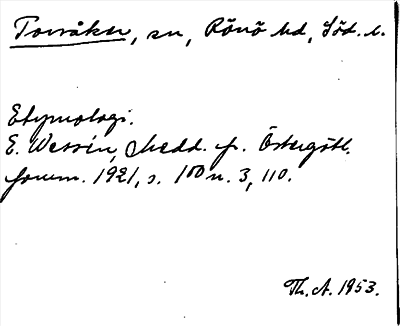 Torsåker, sn, Rönö hd, Söd. l.
Etymologi.
E. Wessén, Medd. fr. Östergötl.
fornm. 1921, s. 100 n. 3, 110.
Th. A. 1953.